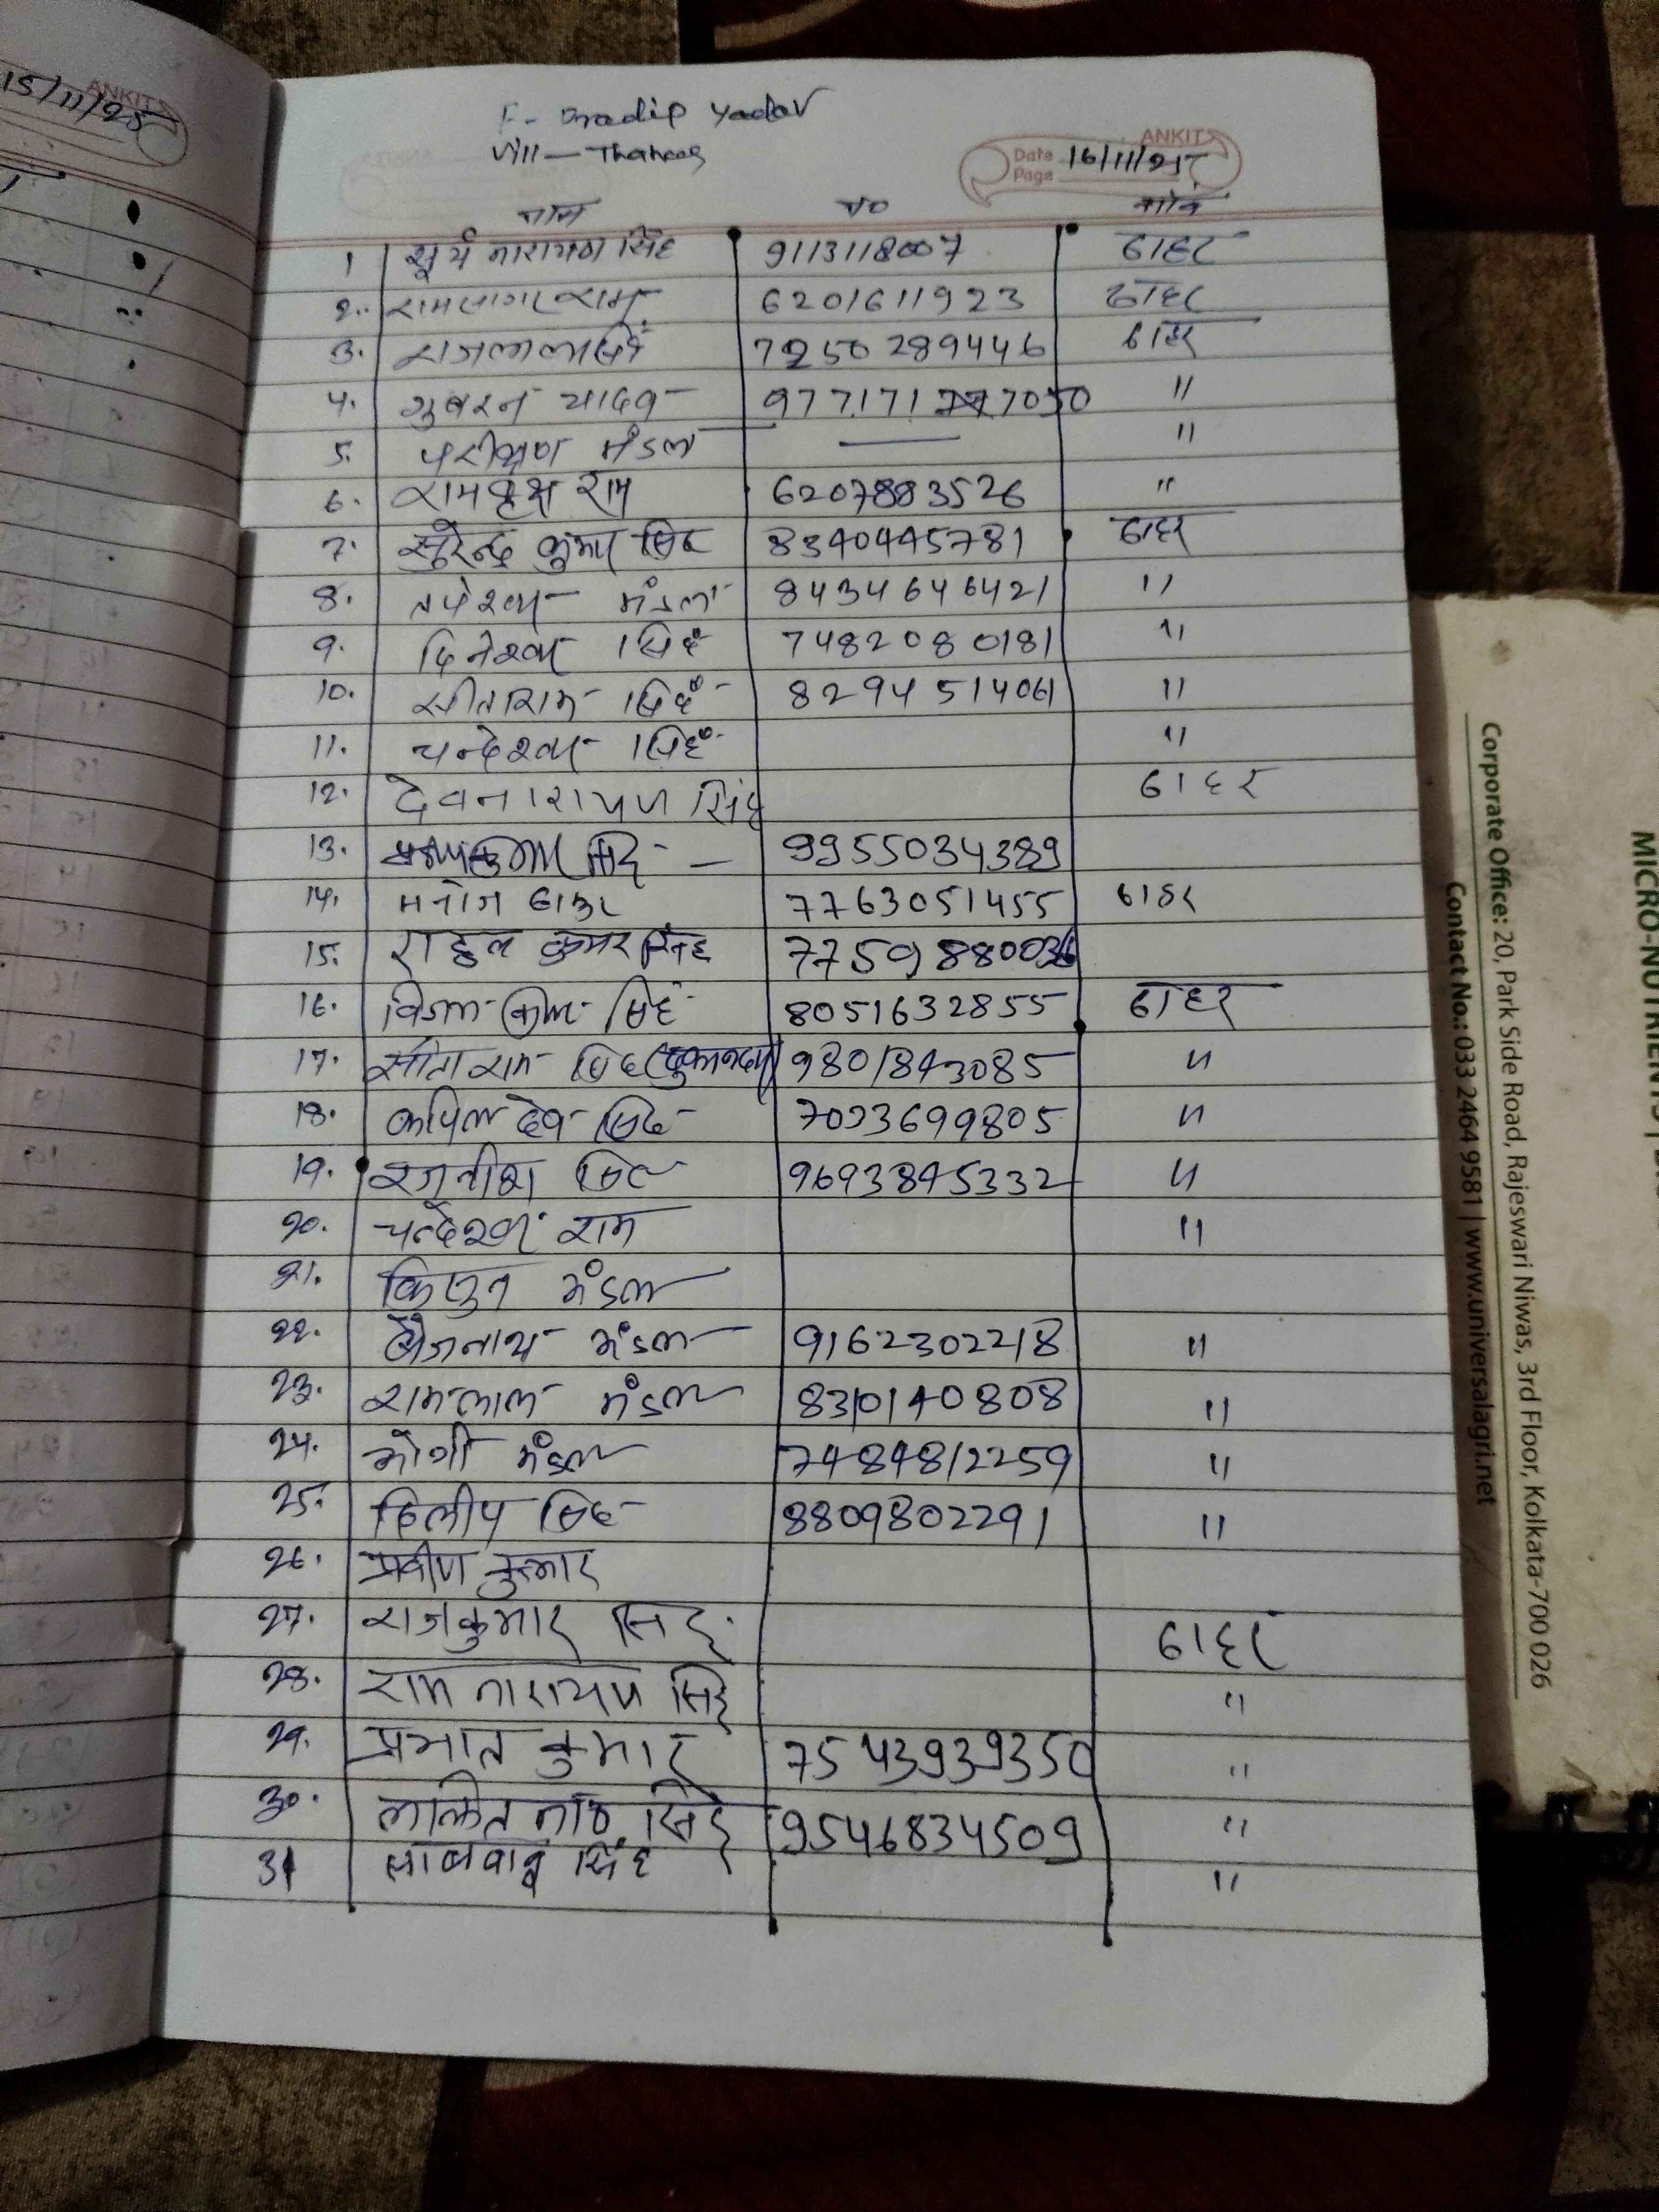 15/11/25
ANKIT
F- Pradip Yadav
Vill - Thahar
ANKIT
Date 16/11/25
Page
नाम no गाँव
1 सूर्य नारायण सिंह 9113118007 ठाहर
2. रामसागर राम 6201611923 ठाहर
3. राजलाल सिंह 7250289446 ठाहर
4. गुबरन यादव 977171 7050 "
5. परीक्षण मंडल — "
6. रामवृक्ष राम 6207883526 "
7. सुरेन्द्र कुमार सिंह 8340445781 ठाहर
8. तपेश्वर मंडल 8434646421 "
9. दिनेश्वर सिंह 7482080181 "
10. सीताराम सिंह 8294514061 "
11. चन्देश्वर सिंह "
12. देवनारायण सिंह ठाहर
13. कुमार सिंह - 9955034389
14. मनोज ठाकुर 7763051455 ठाहर
15. राहुल कुमार सिंह 77598800
16. सिंह 8051632855 ठाहर
17. सीता राम सिंह (दुकानदार) 9801843085 "
18. कपिल देव सिंह 7033699805 "
19. रजनीश सिंह 9693845332 "
20. चन्देश्वर राम "
21. किशुन मंडल
22. बैजनाथ मंडल 9162302218 "
23. रामलाल मंडल 8310140808 "
24. मंडल 7484812259 "
25. दिलीप सिंह 8809802291 "
26. प्रवीण कुमार
27. राजकुमार सिंह ठाहर
28. राम नारायण सिंह "
29. प्रभात कुमार 7543939350 "
30. ललित नाथ सिंह 9546834509 "
31 सिंह "
MICRO-NUTRIENTS
Corporate Office: 20, Park Side Road, Rajeswari Niwas, 3rd Floor, Kolkata-700 026
Contact No.: 033 2464 9581 | www.universalagri.net